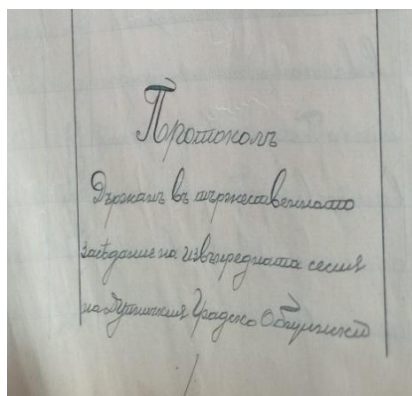 Протоколъ
Държанъ въ тържественното
заседание на извънредната сесия
на Дупнишкия Градско Общински